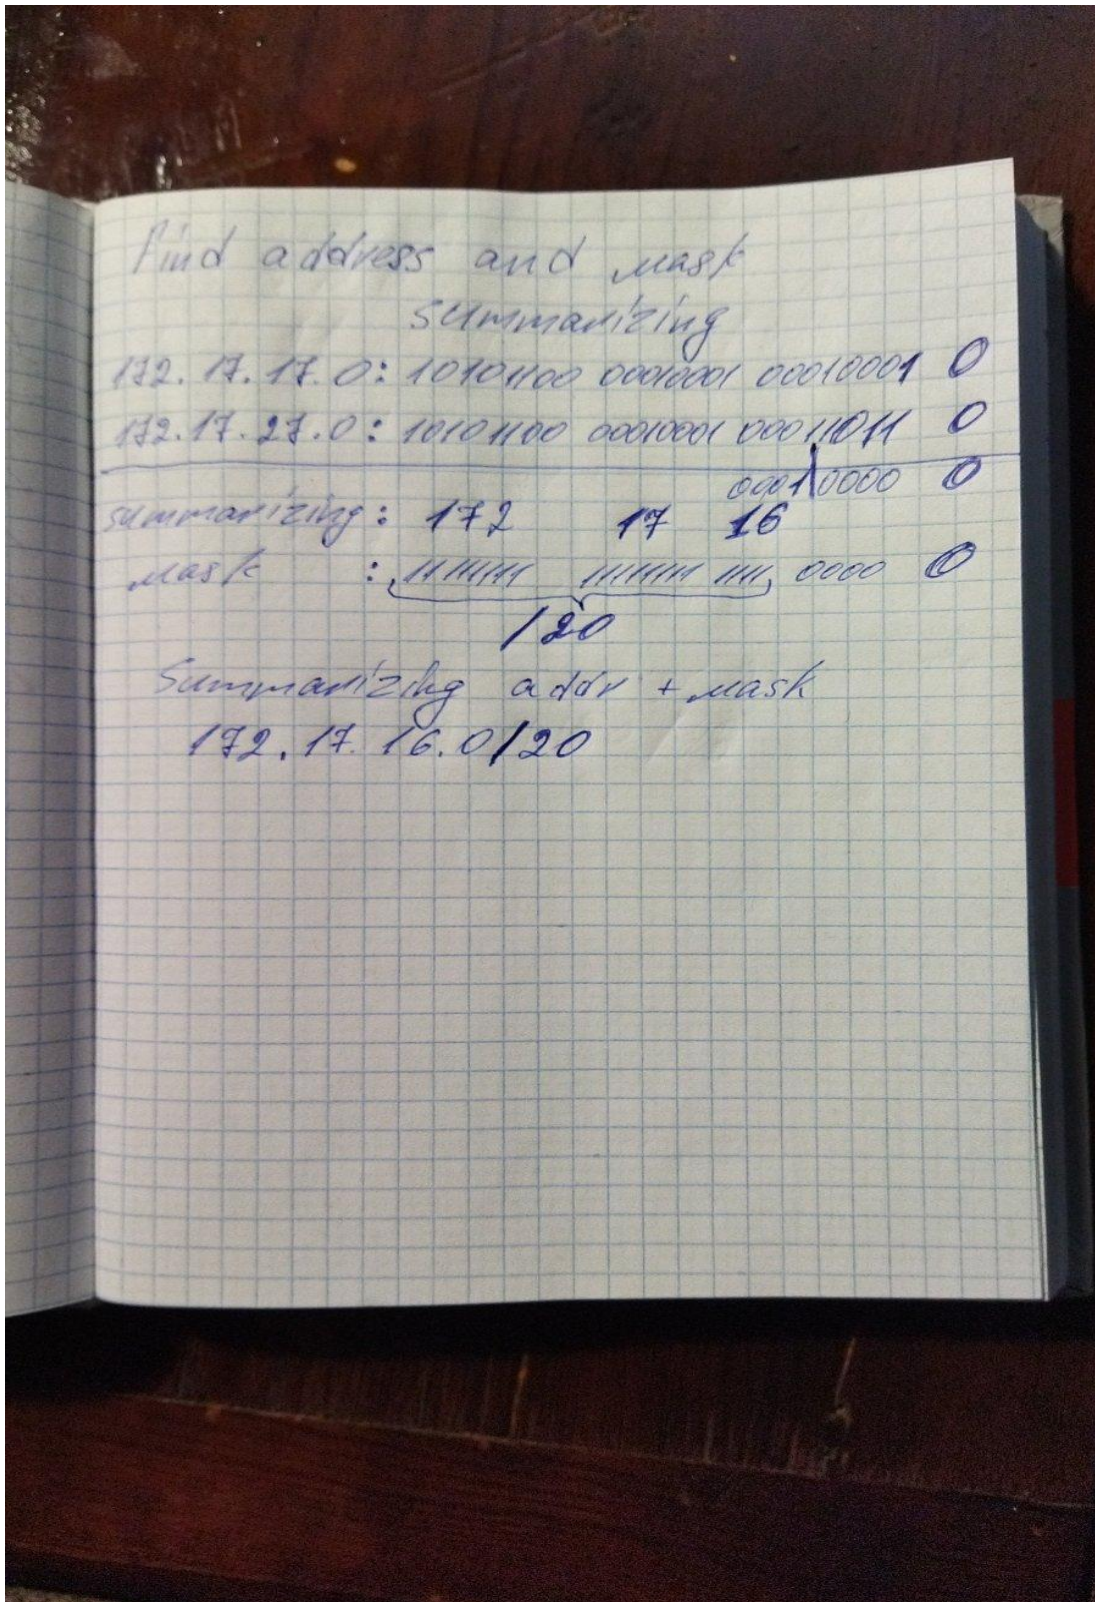 Find address and mask
summarizing
172.17.17.0: 10101100 00010001 00010001 0
172.17.27.0: 10101100 00010001 00011011 0
0001|0000 0
summarizing: 172 17 16
mask : 11111111 11111111 1111 0000 0
/20
Summarizing addr + mask
172.17.16.0/20